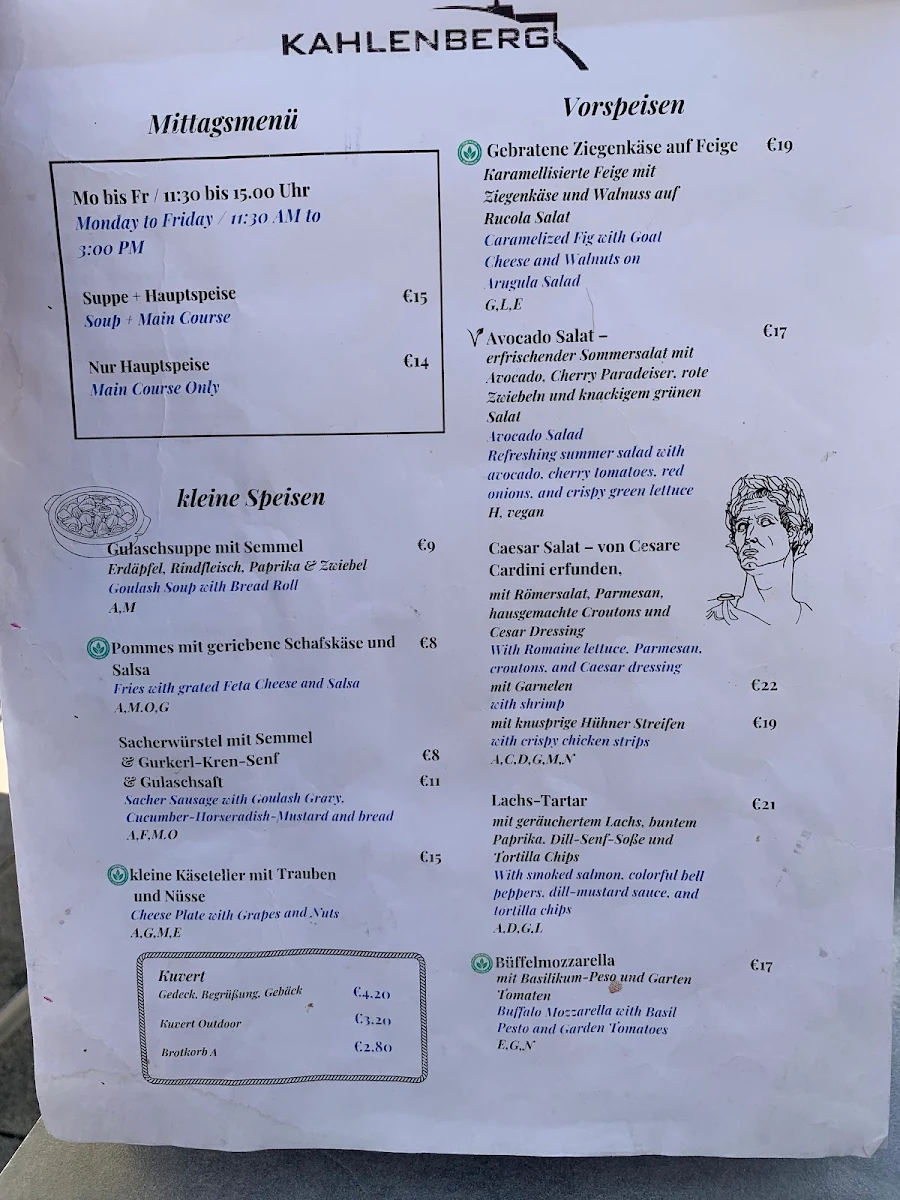 KAHLENBERG
Mittagsmenü
Mo bis Fr / 11:30 bis 15.00 Uhr
Monday to Friday / 11:30 AM to
3:00 PM
Suppe + Hauptspeise €15
Soup + Main Course
Nur Hauptspeise €14
Main Course Only
kleine Speisen
Gulaschsuppe mit Semmel €9
Erdäpfel, Rindfleisch, Paprika & Zwiebel
Goulash Soup with Bread Roll
A,M
Pommes mit geriebene Schafskäse und €8
Salsa
Fries with grated Feta Cheese and Salsa
A,M,O,G
Sacherwürstel mit Semmel
& Gurkerl-Kren-Senf €8
& Gulaschsaft €11
Sacher Sausage with Goulash Gravy,
Cucumber-Horseradish-Mustard and bread
A,F,M,O
€15
kleine Käseteller mit Trauben
und Nüsse
Cheese Plate with Grapes and Nuts
A,G,M,E
Kuvert
Gedeck, Begrüßung, Gebäck €4.20
Kuvert Outdoor €3.20
Brotkorb A €2.80
Vorspeisen
Gebratene Ziegenkäse auf Feige €19
Karamellisierte Feige mit
Ziegenkäse und Walnuss auf
Rucola Salat
Caramelized Fig with Goat
Cheese and Walnuts on
Arugula Salad
G,L,E
Avocado Salat – €17
erfrischender Sommersalat mit
Avocado, Cherry Paradeiser, rote
Zwiebeln und knackigem grünen
Salat
Avocado Salad
Refreshing summer salad with
avocado, cherry tomatoes, red
onions, and crispy green lettuce
H, vegan
Caesar Salat – von Cesare
Cardini erfunden,
mit Römersalat, Parmesan,
hausgemachte Croutons und
Cesar Dressing
With Romaine lettuce, Parmesan,
croutons, and Caesar dressing
mit Garnelen €22
with shrimp
mit knusprige Hühner Streifen €19
with crispy chicken strips
A,C,D,G,M,N
Lachs-Tartar €21
mit geräuchertem Lachs, buntem
Paprika, Dill-Senf-Soße und
Tortilla Chips
With smoked salmon, colorful bell
peppers, dill-mustard sauce, and
tortilla chips
A,D,G,L
Büffelmozzarella €17
mit Basilikum-Peso und Garten
Tomaten
Buffalo Mozzarella with Basil
Pesto and Garden Tomatoes
E,G,,N